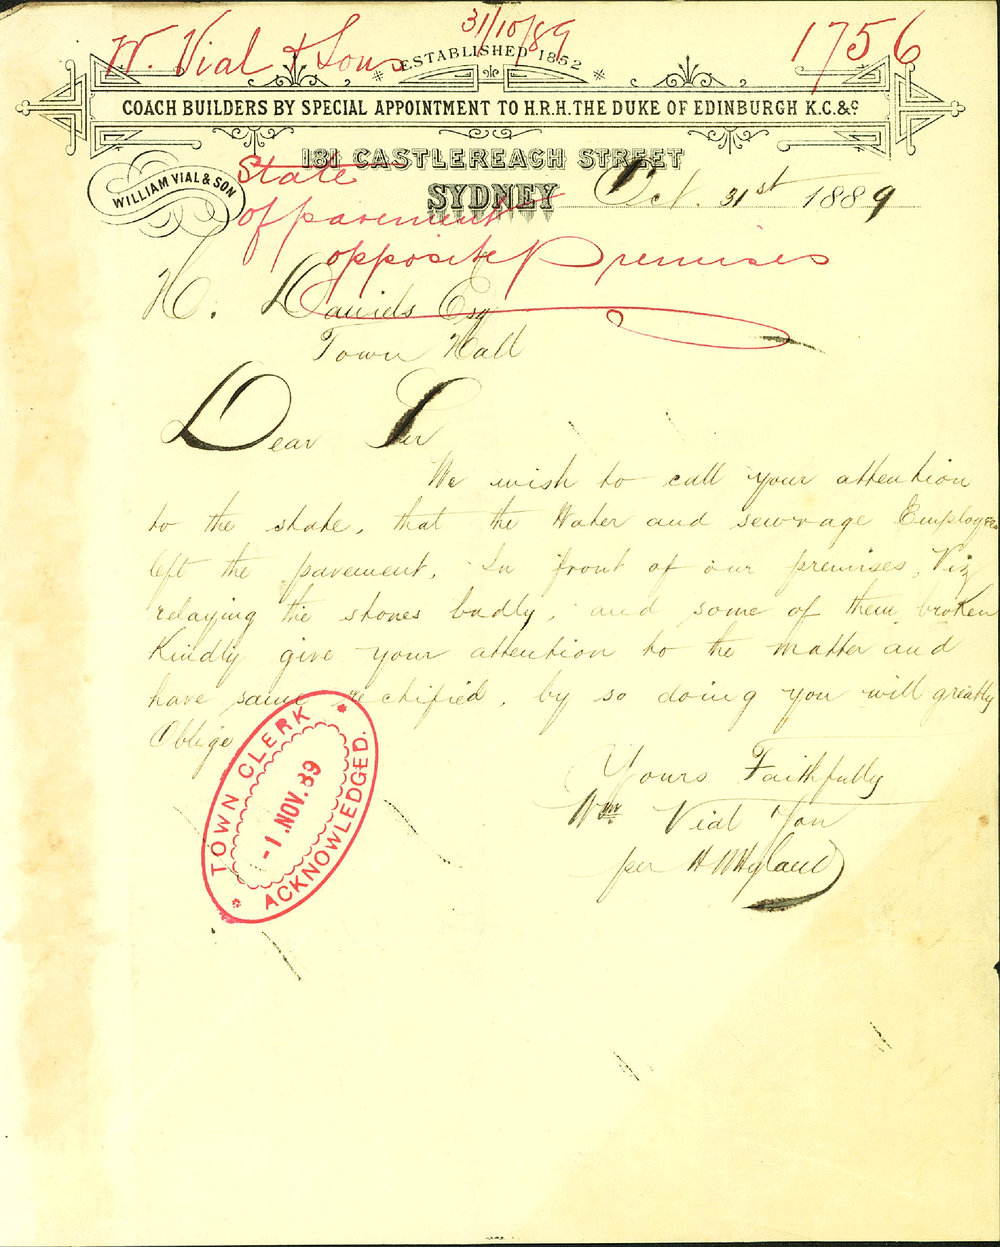 31/10/89
W. Vial & Sons
1756
ESTABLISHED 1852
COACH BUILDERS BY SPECIAL APPOINTMENT TO H.R.H. THE DUKE OF EDINBURGH K.C. &c.
181 CASTLEREACH STREET
WILLIAM VIAL & SON
State
SYDNEY Oct. 31st 1889
of pavement
opposite Premises
H. Daniels Esq
Town Hall
Dear Sir
We wish to call your attention
to the state, that the Water and sewrage Employees
left the pavement, In front of our premises, Viz
relaying the stones badly, and some of them broken
Kindly give your attention to the matter and
have same rectified, by so doing you will greatly
Oblige
Yours Faithfully
Wm Vial Son
per H Hyland
TOWN CLERK
-1. NOV. 89
ACKNOWLEDGED.